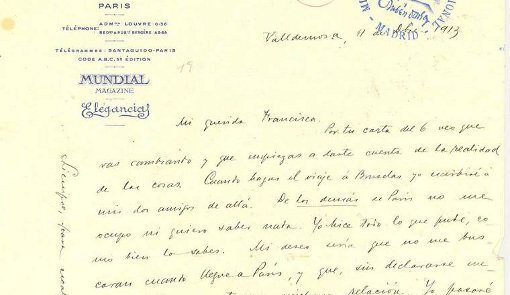 PARIS
TÉLÉPHONE
ADMon LOUVRE 0-36
RÉDon & PUBté BERGÈRE
TÉLÉGRAMMES : SANTAGUIDO-PARIS
CODE A.B.C. 5e ÉDITION
MUNDIAL
MAGAZINE
Elegancias
MADRID
Valldemosa, 11 1913
19
Mi querida Francisca.
Por tu carta del 6 veo que
vas cambiando y que empiezas a darte cuenta de la realidad
de las cosas. Cuando hagas el viaje á Bruselas yo escribiré á
mis dos amigos de allá. De los demás de París no me
ocupo ni quiero saber nada. Yo hice todo lo que pude, co
mo bien lo sabes. Mi deseo sería que no me bus
caran cuando llegue a París, y que, sin declararse
relación. Yo pasaré
Siempre, para